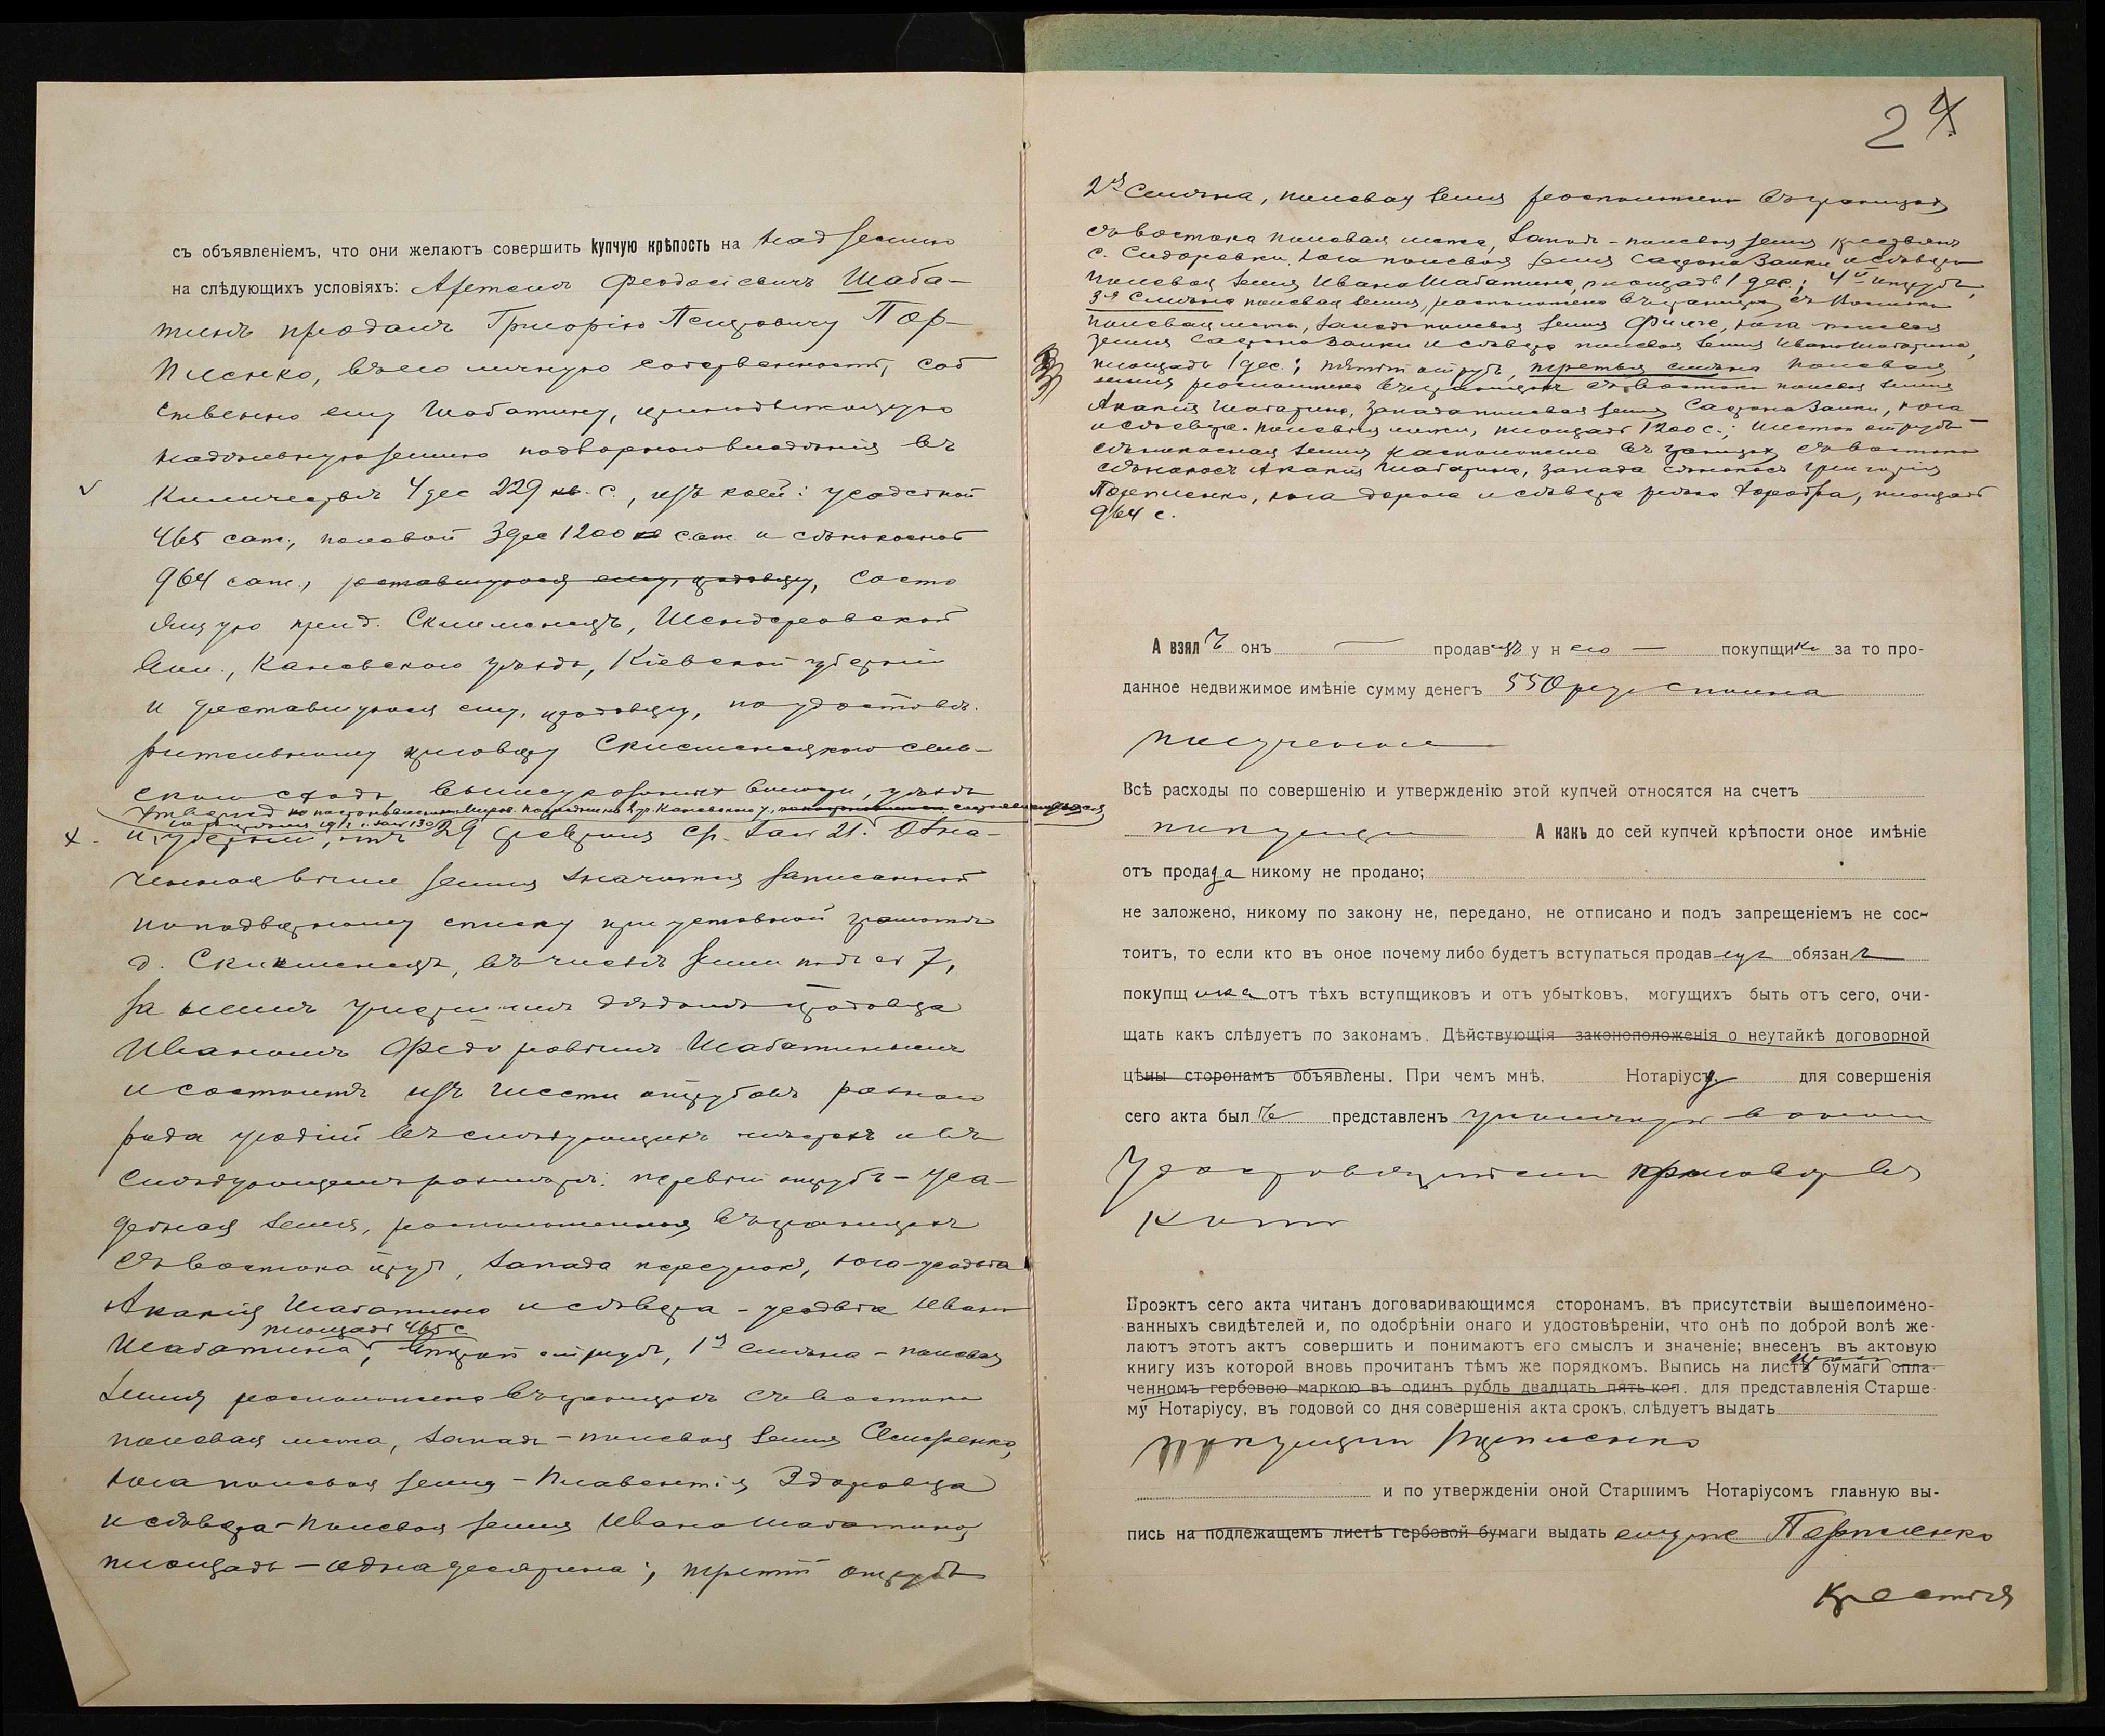 съ объявленіемъ, что они желаютъ совершить купчую крѣпость на над землю
на слѣдующихъ условіяхъ: Артемъ Феодосіевичъ Шаба-
тинъ продалъ Григорію Петровичу Пор-
пленко, въ его личную собственность, соб
ственно ему Шабатину, принадлежащую
надѣльную землю подворнаго владѣнія въ
количествѣ 4 дес 229 кв. с., изъ коей: усадебной
465 саж., полевой 3 дес 1200 саж и сѣнокосной
964 саж., доставшуюся ему, продавцу, состо
ящую при д. Склименцѣ, Шендеровской
вол., Каневскаго уѣзда, Кіевской губерніи
и доставшуюся ему, продавцу, по удостовѣ-
рительному приговору Склименецкаго сель-
скаго схода, вышеуказанной волости, уѣзда
и губерніи, отъ 29 февраля с/г. за № 21. Озна-
ченная выше земля значится записанной
по подворному списку при уставной грамотѣ
д. Склименецъ, въ числѣ земли подъ № 7,
за дѣдомъ продавца
Иваномъ Федоровымъ Шабатинымъ
и состоитъ изъ шести отрубовъ разнаго
рода угодій въ слѣдующихъ мѣстахъ и въ
слѣдующемъ размѣрѣ: первый отрубъ – уса-
дебная земля, расположенная въ границахъ
съ востока , запада переулокъ, юга – усадьба
Акакія Шабатина и сѣвера – усадьба Ивана
площадь 465 с
Шабатина, второй отрубъ, 1я смѣна – полевая
земля расположена въ границахъ съ востока
полевая межа, западъ – полевая земля
юга полевая земля – Здоровца
и сѣвера – полевая земля Ивана Шабатина,
площадь – одна десятина; третій отрубъ
24
2я смѣна, полевая земля расположена въ границахъ
съ востока полевая межа, западъ – полевая земля крестьянъ
с. Сидоровки, юга полевая земля Заики и сѣвера
полевая земля Ивана Шабатина, площадь 1 дес.; 4й отрубъ,
3я смѣна полевая земля, расположена въ границахъ съ востока
полевая межа, запада полевая земля , юга полевая
земля Заики и сѣвера полевая земля Ивана Шабатина,
площадь 1 дес.; пятый отрубъ, третья смѣна полевая
земля расположена въ границахъ съ востока полевая земля
Акакія Шабатина, запада полевая земля Заики, юга
и сѣвера полевыя межи, площадь 1200 с.; шестой отрубъ –
сѣнокосная земля расположена въ границахъ съ востока
сѣнокосъ Акакія Шабатина, запада сѣнокосъ Григорія
Порпленко, юга дорога и сѣвера , площадь
964 с.
А взялъ онъ продавецъ у него покупщика за то про-
данное недвижимое имѣніе сумму денегъ 550 руб сполна
полученные
Всѣ расходы по совершенію и утвержденію этой купчей относятся на счетъ
покупщика А какъ до сей купчей крѣпости оное имѣніе
отъ продавца никому не продано;
не заложено, никому по закону не, передано, не отписано и подъ запрещеніемъ не сос-
тоитъ, то если кто въ оное почему либо будетъ вступаться продавецъ обязанъ
покупщика отъ тѣхъ вступщиковъ и отъ убытковъ, могущихъ быть отъ сего, очи-
щать какъ слѣдуетъ по законамъ. Дѣйствующія законоположенія о неутайкѣ договорной
цѣны сторонамъ объявлены. При чемъ мнѣ, Нотаріусу, для совершенія
сего акта былъ представленъ упомянутый выше
удостовѣрительный приговоръ въ
копіи
Проэктъ сего акта читанъ договаривающимся сторонамъ, въ присутствіи вышепоимено-
ванныхъ свидѣтелей и, по одобрѣніи онаго и удостовѣреніи, что онѣ по доброй волѣ же-
лаютъ этотъ актъ совершить и понимаютъ его смыслъ и значеніе; внесенъ въ актовую
книгу изъ которой вновь прочитанъ тѣмъ же порядкомъ. Выпись на листѣ бумаги опла-
ченномъ гербовою маркою въ одинъ рубль двадцать пять коп. для представленія Старше-
му Нотаріусу, въ годовой со дня совершенія акта срокъ, слѣдуетъ выдать
покупщику Порпленко
и по утвержденіи оной Старшимъ Нотаріусомъ главную вы-
пись на подлежащемъ листѣ гербовой бумаги выдать ему же Порпленко